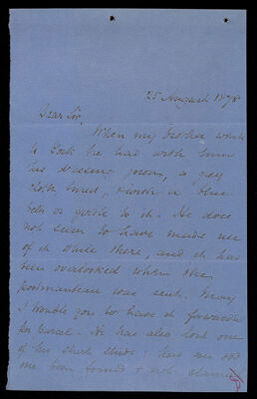 25 August 1878
Dear Sir,
When my brother went
to he had with him
his dressing gown, a grey
cloth lined, & with a blue
belt or girdle to it. He does
not seem to have made use
of it while there, and it has
been overlooked when the
portmanteau was sent. May
I trouble you to have it forwarded
for . He has also lost one
of his shirt studs; has an odd
one been found &